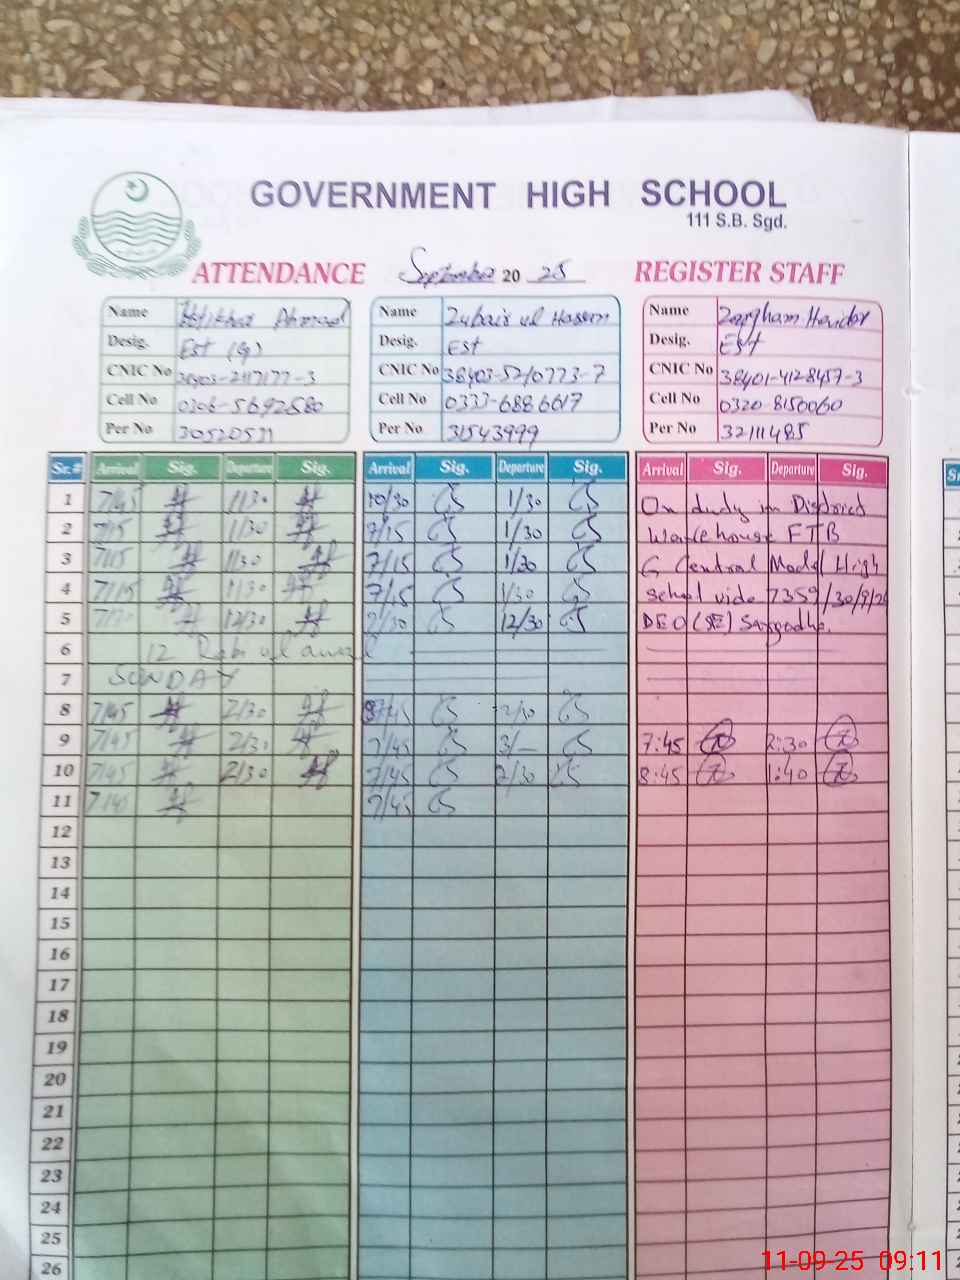 GOVERNMENT HIGH SCHOOL
111 S.B. Sgd.
ATTENDANCE September 20 25 REGISTER STAFF
Name Iftikhar Ahmad Name Zubair ul Hasem Name Zargham Haider
Desig. Est (G) Desig. EST Desig. EST
CNIC No 38403-2117177-3 CNIC No 38403-5210773-7 CNIC No 38401-4128457-3
Cell No 0306-5692580 Cell No 0333-6886617 Cell No 0320-8150060
Per No Per No 31543999 Per No 32111485
Sr.# Arrival Sig. Departure Sig. Arrival Sig. Departure Sig. Arrival Sig. Departure Sig.
1 7/45 1/30 10/30 1/30 On duty in District
2 7/15 1/30 7/15 1/30 Warehouse FTB
3 7/15 1/30 7/15 1/30 G Central Model High
4 7/15 1/30 7/15 1/30 School vide 7359/30/9/2
5 7/30 12/30 7/30 12/30 DEO (SE) Sargodha.
6 12 Rabi ul awal
7 SUNDAY
8 7/45 2/30 7/45 2/30
9 7/45 2/30 7/45 3/- 7:45 2:30
10 7/45 2/30 7/45 2/30 8:45 1:40
11 7/45 7/45
12
13
14
15
16
17
18
19
20
21
22
23
24
25
26
11-09-25 09:11